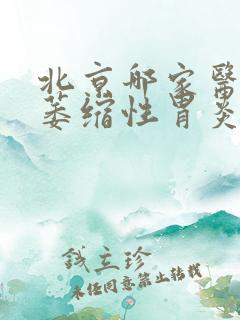 北京那家醫
萎缩性胃炎
钱立珍
未经同意禁止转载